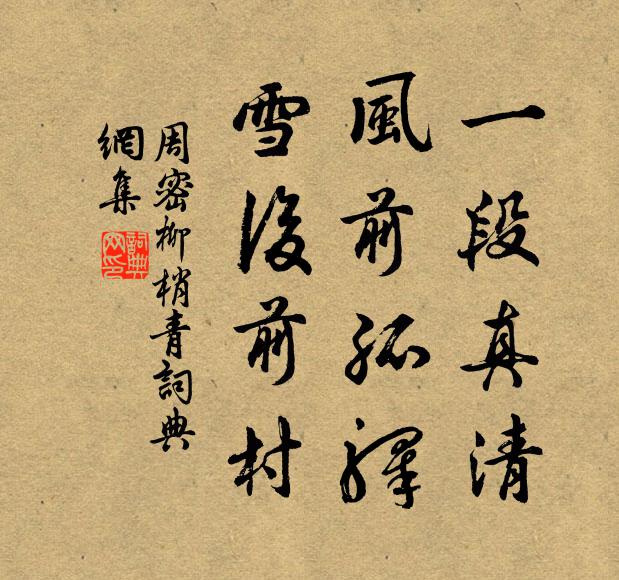 一段真清
風前孤驛
雪後前村
周密柳梢青詞典
網集
詞典
网印